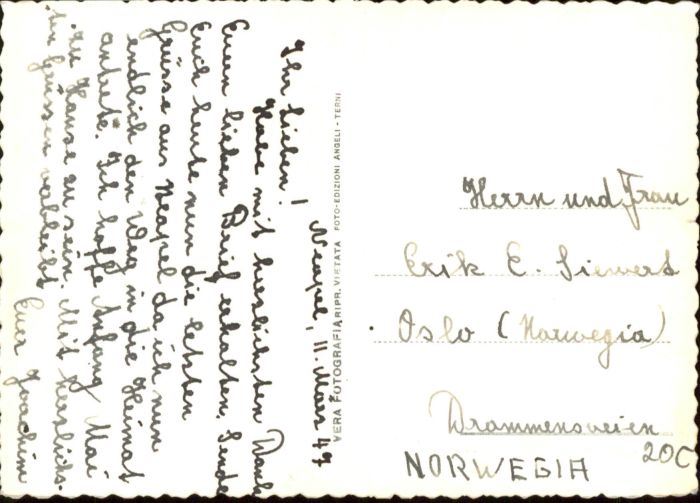 Neapel, 11. März 47
Ihr Lieben!
Habe mit herzlichsten Dank
Euren lieben Brief erhalten. Sende
Euch heute nun die letzten
Grüsse aus Neapel da ich nun
endlich den Weg in die Heimat
antrete. Ich hoffe Anfang Mai
zu Hause zu sein. Mit herzlich-
sten Grüssen verbleibt
Euer Joachim
VERA FOTOGRAFIA RIPR. VIETATA FOTO-EDIZIONI ANGELI - TERNI
Herrn und Frau
Erik E. Siewers
Oslo (Norwegia)
Drammensveien
20C
NORWEGIA